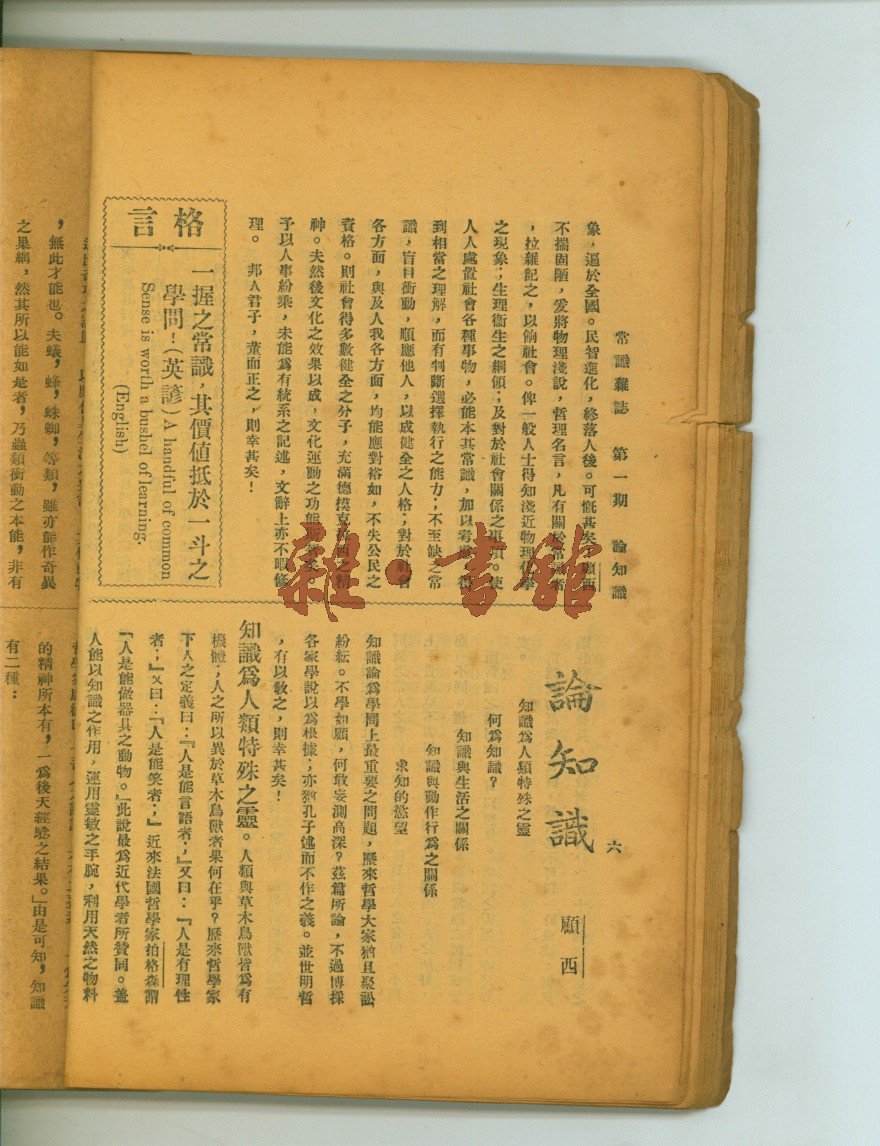 常識雜誌　第一期　論知識
六
象，逼於全國。民智進化，終落人後。可慨甚矣。顧西
不揣固陋，爰將物理淺說，哲理名言，凡有關於常識者
，拉雜記之，以餉社會。俾一般人士得知淺近物理化學
之現象；生理衛生之綱領；及對於社會關係之事項。使
人人處置社會各種事物，必能本其常識，加以考慮，得
到相當之理解，而有判斷選擇執行之能力；不至缺乏常
識，盲目衝動，順應他人，以成健全之人格；對於社會
各方面，與及人我各方面，均能應對裕如，不失公民之
資格。則社會得多數健全之分子，充滿德摸克
神。夫然後文化之效果以成，文化運動之功能
予以人事紛乘，未能爲有統系之記述，文辭上亦不暇修
理。　邦人君子，董而正之，則幸甚矣！
格言
一握之常識，其價値抵於一斗之
學問！（英諺）A handful of common
Sense is worth a bushel of learning.
(English)
論知識
顧西
知識爲人類特殊之靈
何爲知識？
知識與生活之關係
知識與動作行爲之關係
求知的慾望
知識論爲學問上最重要之問題，歷來哲學大家猶且聚訟
紛紜。不學如顧，何敢妄測高深？茲篇所論，不過博採
各家學說以爲根據；亦猶孔子述而不作之義。並世明哲
，有以敎之，則幸甚矣！
知識爲人類特殊之靈。人類與草木鳥獸皆爲有
機體；人之所以異於草木鳥獸者果何在乎？歷來哲學家
下人之定義曰：『人是能言語者；』又曰：『人是有理性
者；』又曰：『人是能笑者；』近來法國哲學家拍格森謂
『人是能做器具之動物。』此說最爲近代學者所贊同。蓋
人能以知識之作用，運用靈敏之手腕，利用天然之物料
，無此才能也。夫蟻，蜂，蛛蜘，等類，雖亦能作奇異
之巢網，然其所以能如是者，乃蟲類衝動之本能，非有
的精神所本有，一爲後天經驗之結果。」由是可知，知識
有二種：
雜·書館